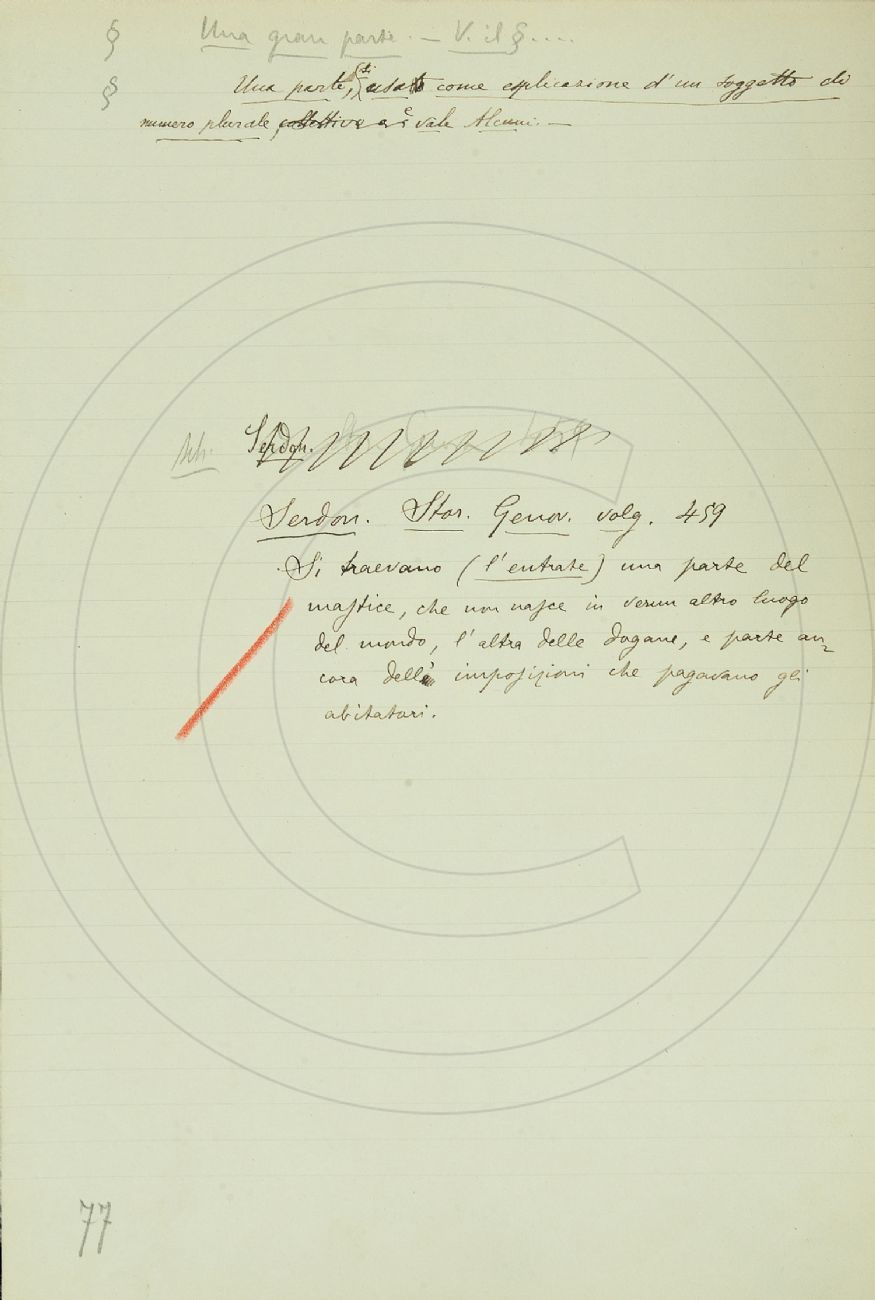 § Una gran parte. — V. il §....
§ Una parte, si usa come esplicazione d'un soggetto di
numero plurale, e vale Alcuni. —
Serdon.
Serdon. Stor. Genov. volg. 459
Si traevano (l'entrate) una parte del
mastice, che non nasce in verun altro luogo
del mondo, l'altra delle dogane, e parte an-
cora delle imposizioni che pagavano gli
abitatori.
77